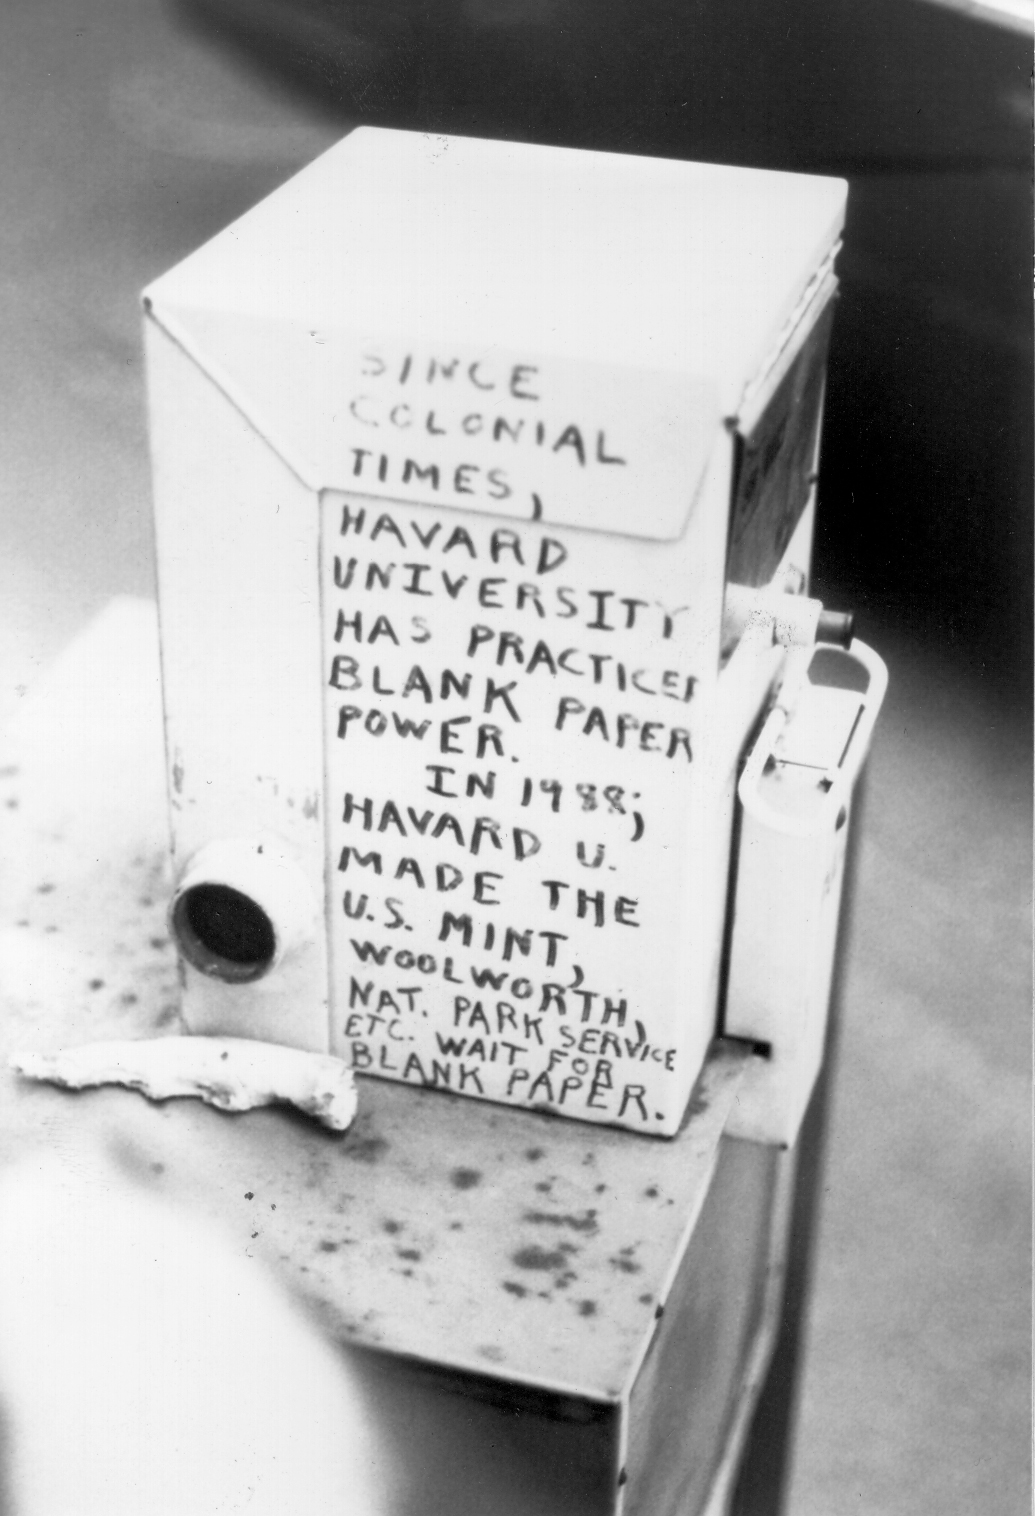 SINCE
COLONIAL
TIMES,
HAVARD
UNIVERSITY
HAS PRACTICES
BLANK PAPER
POWER.
IN 1988;
HAVARD U.
MADE THE
U.S. MINT,
WOOLWORTH,
NAT. PARK SERVICE
ETC. WAIT FOR
BLANK PAPER.